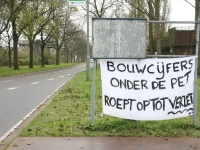 BOUWCIJFERS
ONDER DE PET
ROEPT OP TOT VERZET